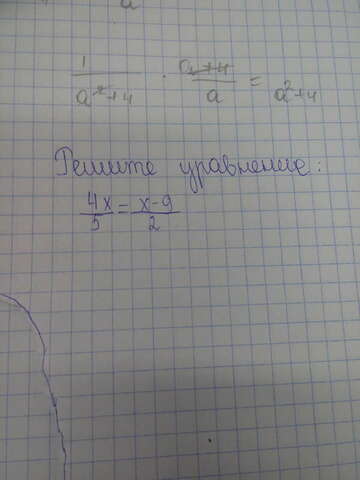 1/(a²+4) · (a+4)/a = a²+4
Решите уравнение:
4x/5 = x-9/2